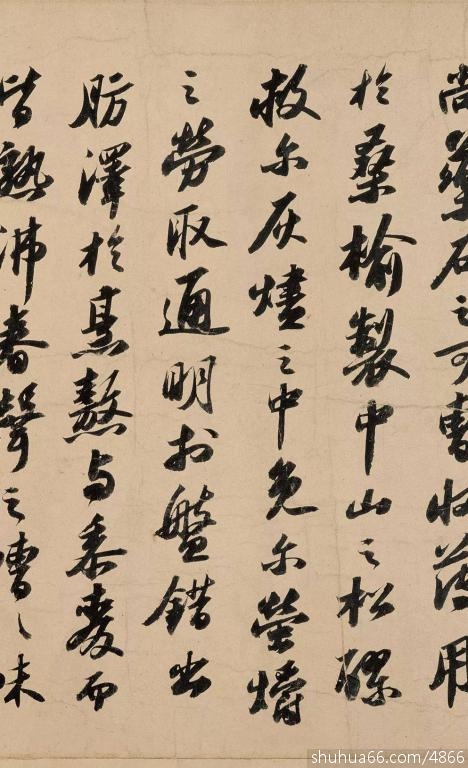 尚藥石之可曹收薄用
於桑榆製中山之松醪
救尔灰燼之中免尔螢爝
之勞取通明於盤錯出
肪澤於烹熬与黍麥而
皆熟沸舂聲之嘈〻味
shuhua66.com/4866